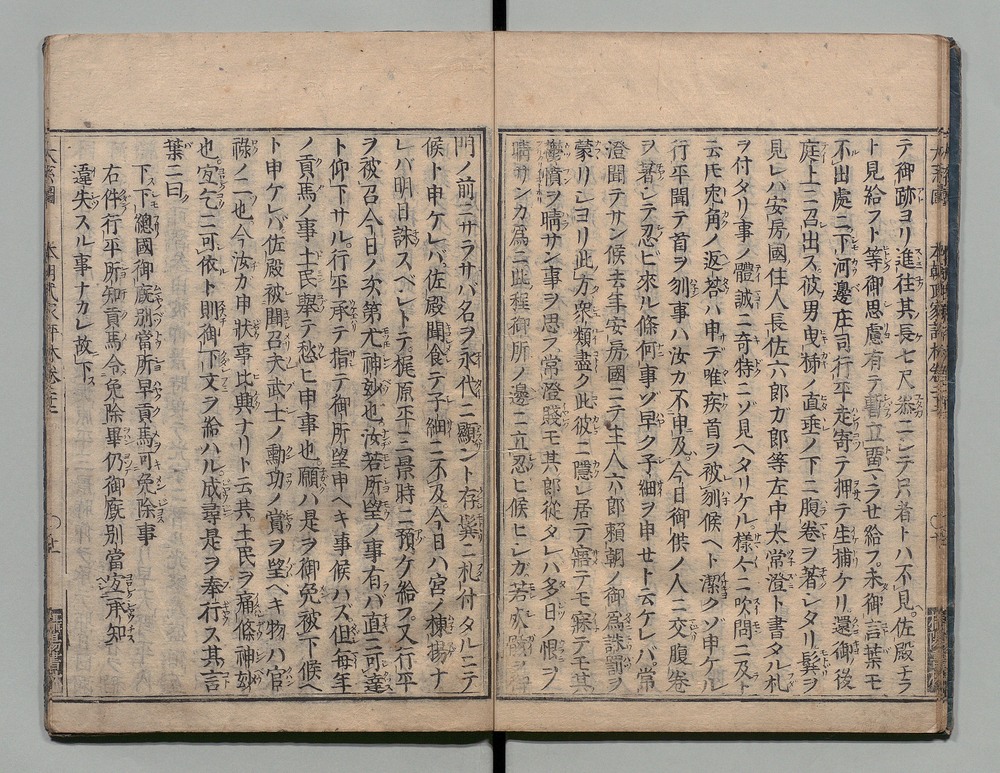 テ御跡ヨリ進往其長七尺余ニシテ只者トハ不見佐殿ナラ
ト見給フト等御思慮有テ暫立畱ラセ給フ未御言葉モ
不出處ニ下河邊庄司行平走寄テ押テ生捕ケリ還御後
庭上ニ召出ス彼男曳柿ノ直垂ノ下ニ腹卷ヲ著シタリ髻ヲ
見レハ安房國住人長佐六郎カ郎等左中太常澄ト書タル札
ヲ付タリ事ノ體誠ニ奇特ニゾ見ヘタリケル様々ニ吹問ニ及ト
云氏兎角ノ返荅ハ申デ唯疾首ヲ被刎候ヘト潔クゾ申ケル
行平聞テ首ヲ刎事ハ汝カ不申及今日御供ノ人ニ交腹卷
ヲ著シテ忍ヒ來ル條何事ゾ早ク子細ヲ申セト云ケレバ常
澄聞テサン候去年安房國ニテ主人六郎賴朝ノ御爲誅罰ヲ
蒙リシヨリ此方衆類盡ク此彼ニ隱レ居テ寤テモ寐テモ其
鬱憤ヲ晴サン事ヲ思ラ常澄賤モ其郎從タレハ多日ノ恨ヲ
晴サンカ爲ニ此程御所ノ邊ニ立忍ヒ候ヒシカ若
門ノ前ニサラサバ名ヲ永代ニ顯ント存髻ニ札付タルニテ
候ト申ケレバ佐殿聞食テ子細ニ不及今日ハ宮ノ棟揚ナ
レバ明日誅スベレトテ梶原平三景時ニ預ケ給フ又行平
ヲ被召今日ノ次第尤神妙也汝若所望ノ事有バ直ニ可達
ト仰下サル行平承テ指テ御所望申ヘキ事候ハズ但毎年
ノ貢馬ノ事土民擧テ愁ヒ申事也願ハ是ヲ御免被下候ヘ
ト申ケレバ佐殿被聞召夫武士ノ勳功ノ賞ヲ望ヘキ物ハ官
祿ノ二也今汝カ申狀辜比興ナリト云共土民ヲ痛條神妙
也宜乞ニ可依ト則御下文ヲ給ハル成尋是ヲ奉行ス其言
葉ニ曰
下ス下總國御廐別當所早貢馬可免除事
右件行平所知貢馬今免除畢仍御廐別當宜承知
違失スル事ナカレ故下ス